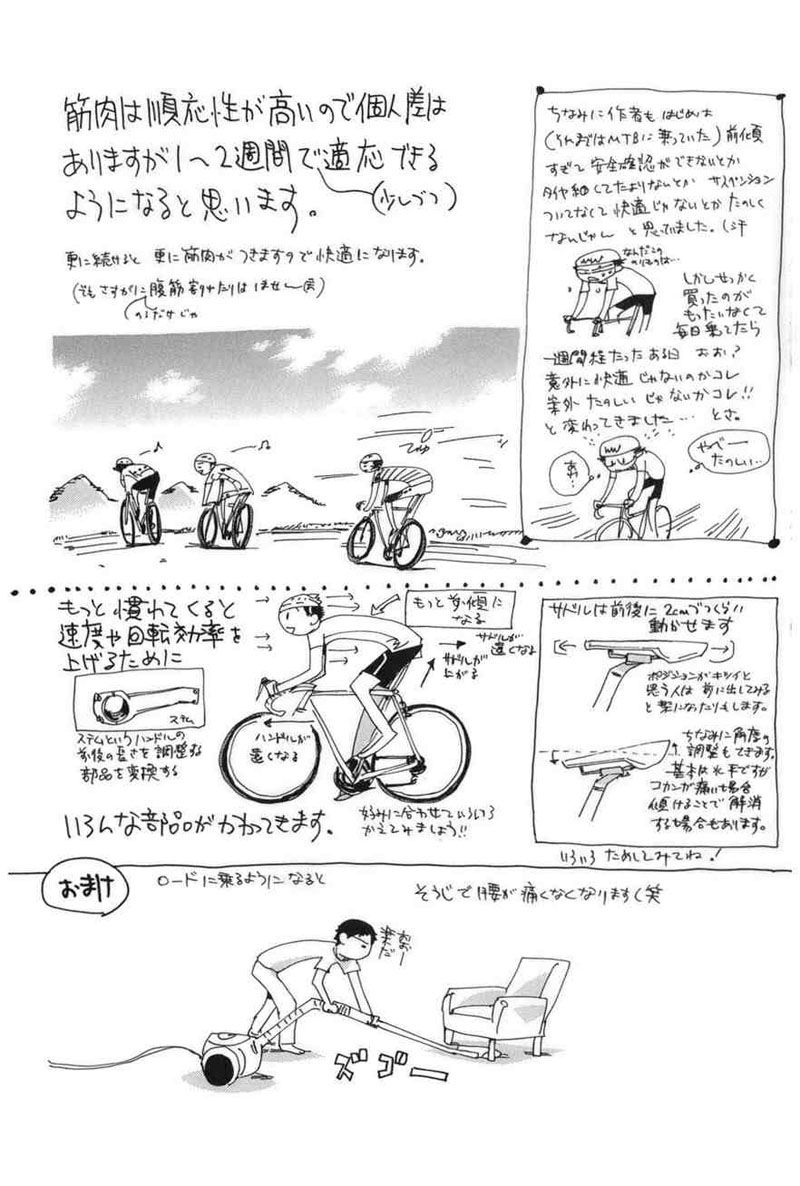 筋肉は順応性が高いので個人差は
ありますが1〜2週間で適応できる
ようになると思います。
(少しづつ)
更に続けると更に筋肉がつきますので快適になります。
(でもさすがに腹筋割れたりはしませーん(笑)
ちなみに作者もはじめは
(それまではMTBに乗っていた)前傾
すぎて安全確認ができないとか
タイヤ細くてたよりないとか サスペンション
ついてなくて快適じゃないとか たのしく
ないじゃん と思っていました。(汗
なんだこの
のりものは…
しかしせっかく
買ったのが
もったいなくて
毎日乗ってたら
一週間経たったある日 おお?
意外に快適じゃないのかコレ
案外たのしいじゃないかコレ!!
と変わってきました… とさ。
やべー
たのしい…
もっと慣れてくると
速度や回転効率を
上げるために
ステム
ステムというハンドルの
前後の長さを調整する
部品を変換する
いろんな部品がかわってきます。
もっと前傾に
なる
サドルが
遠くなる
サドルが
上がる
ハンドルが
遠くなる
好みに合わせていろいろ
かえてみましょう!!
サドルは前後に2cmづつくらい
動かせます
ポジションがキツイと
思う人は前に出してみる
と楽になったりもします。
ちなみに角度の
調整もできます。
基本は水平ですが
コカンが痛い場合
傾けることで解消
する場合もあります。
いろいろためしてみてね!
おまけ
ロードに乗るようになると
そうじで腰が痛くなくなります(笑
おおー
楽だ
ズゴー